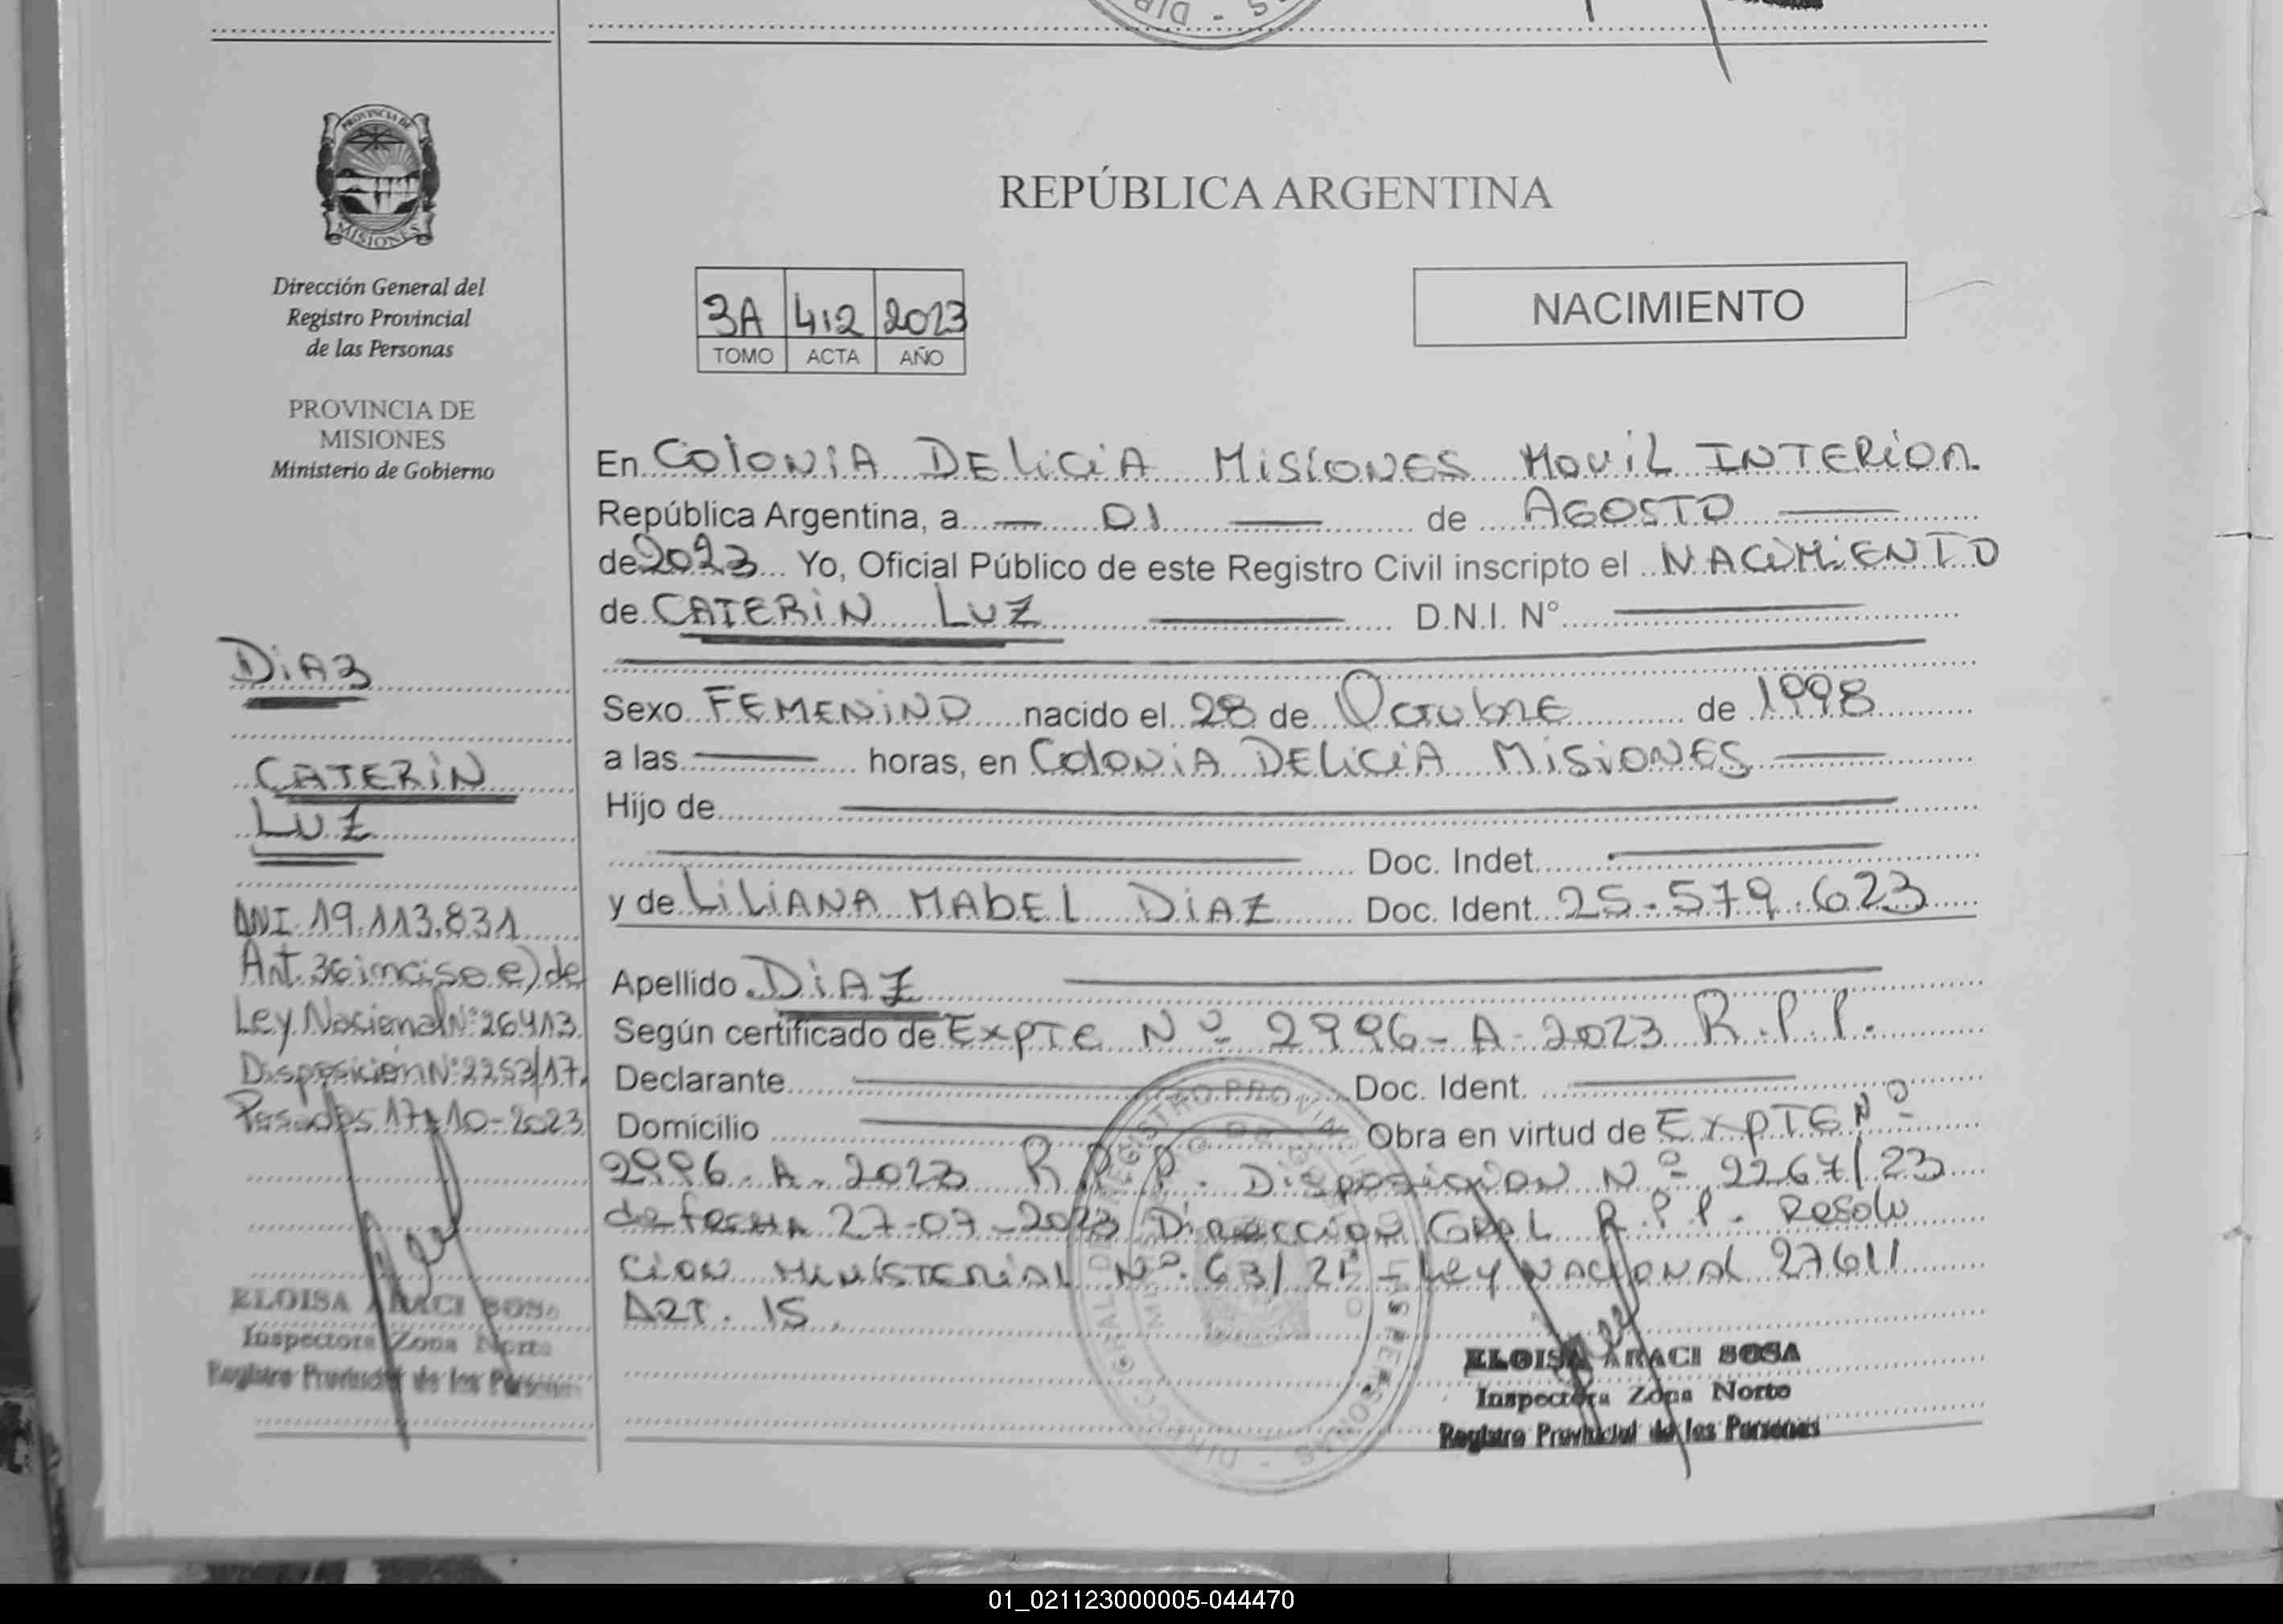 PROVINCIA DE
MISIONES
Dirección General del
Registro Provincial
de las Personas
PROVINCIA DE
MISIONES
Ministerio de Gobierno
DiAZ
CATERIN
LUZ
DNI. 19.113.831
Art. 36 inciso e) de
Ley Nacional Nº 26413.
Disposición Nº 2253/17.
Posadas 17-10-2023
ELOISA ARACI SOSA
Inspectora Zona Norte
Registro Provincial de las Personas
REPÚBLICA ARGENTINA
3A 412 2023
TOMO ACTA AÑO
NACIMIENTO
En COLONIA DELICIA MISIONES MOVIL INTERIOR
República Argentina, a 01 de AGOSTO
de 2023 Yo, Oficial Público de este Registro Civil inscripto el NACIMIENTO
de CATERIN LUZ D.N.I. Nº
Sexo FEMENINO nacido el 28 de OCTUBRE de 1998
a las horas, en COLONIA DELICIA MISIONES
Hijo de
Doc. Indet.
y de LILIANA MABEL DIAZ Doc. Ident. 25.579.623
Apellido DIAZ
Según certificado de EXPTE Nº 2996-A-2023 R.P.P.
Declarante Doc. Ident.
Domicilio Obra en virtud de EXPTE Nº
2996-A-2023 R.P.P. Disposicion Nº 2267/23
de fecha 27-07-2023 Direccion Gral R.P.P. Resolu
cion Ministerial Nº 63/21 - Ley Nacional 27611
ART. 15
ELOISA ARACI SOSA
Inspectora Zona Norte
Registro Provincial de las Personas
01_021123000005-044470